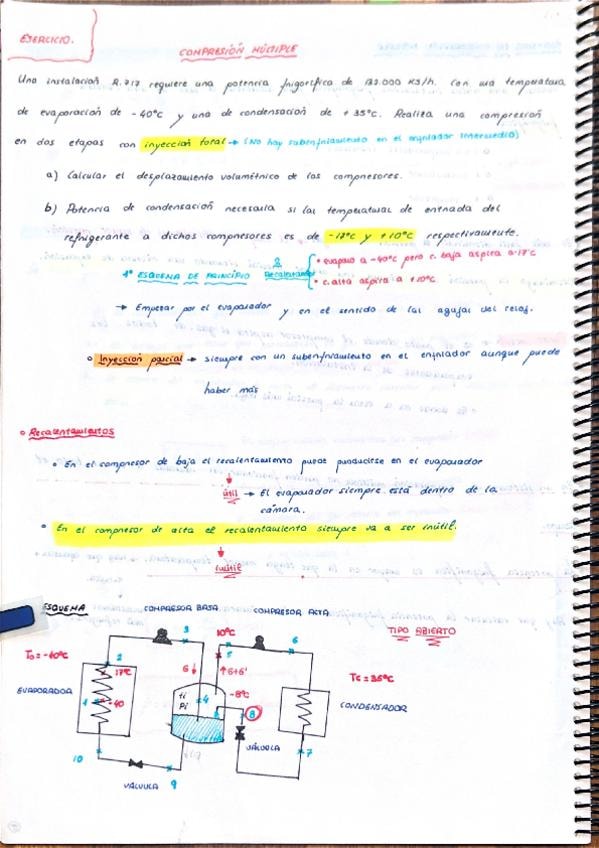 EJERCICIO.
COMPRESIÓN MÚLTIPLE
Una instalación R.717 requiere una potencia frigorífica de 133.000 KJ/h. Con una temperatura
de evaporación de -40ºC y una de condensación de +35ºC. Realiza una compresión
en dos etapas con inyección total → (No hay subenfriamiento en el enfriador intermedio)
a) Calcular el desplazamiento volumétrico de los compresores.
b) Potencia de condensación necesaria si las temperaturas de entrada del
refrigerante a dichos compresores es de -17ºC y +10ºC respectivamente.
1º ESQUEMA DE PRINCIPIO
2 Recalentam.
• evaporo a -40ºC pero c. baja aspira a -17ºC
• c. alta aspira a +10ºC
→ Empezar por el evaporador y en el sentido de las agujas del reloj.
Inyección parcial → siempre con un subenfriamiento en el enfriador aunque puede
haber más
Recalentamientos
• En el compresor de baja el recalentamiento puede producirse en el evaporador
útil → El evaporador siempre está dentro de la
cámara.
• En el compresor de alta el recalentamiento siempre va a ser inútil.
inútil
ESQUEMA
COMPRESOR BAJA
COMPRESOR ALTA
TIPO ABIERTO
To = -40ºC
2
3
10ºC
5
6
-17ºC
G ↓
↑ G+G'
Tc = 35ºC
EVAPORADOR
1
-40
ti
Pi
4
-8ºC
8
CONDENSADOR
VÁLVULA
7
10
VÁLVULA
9